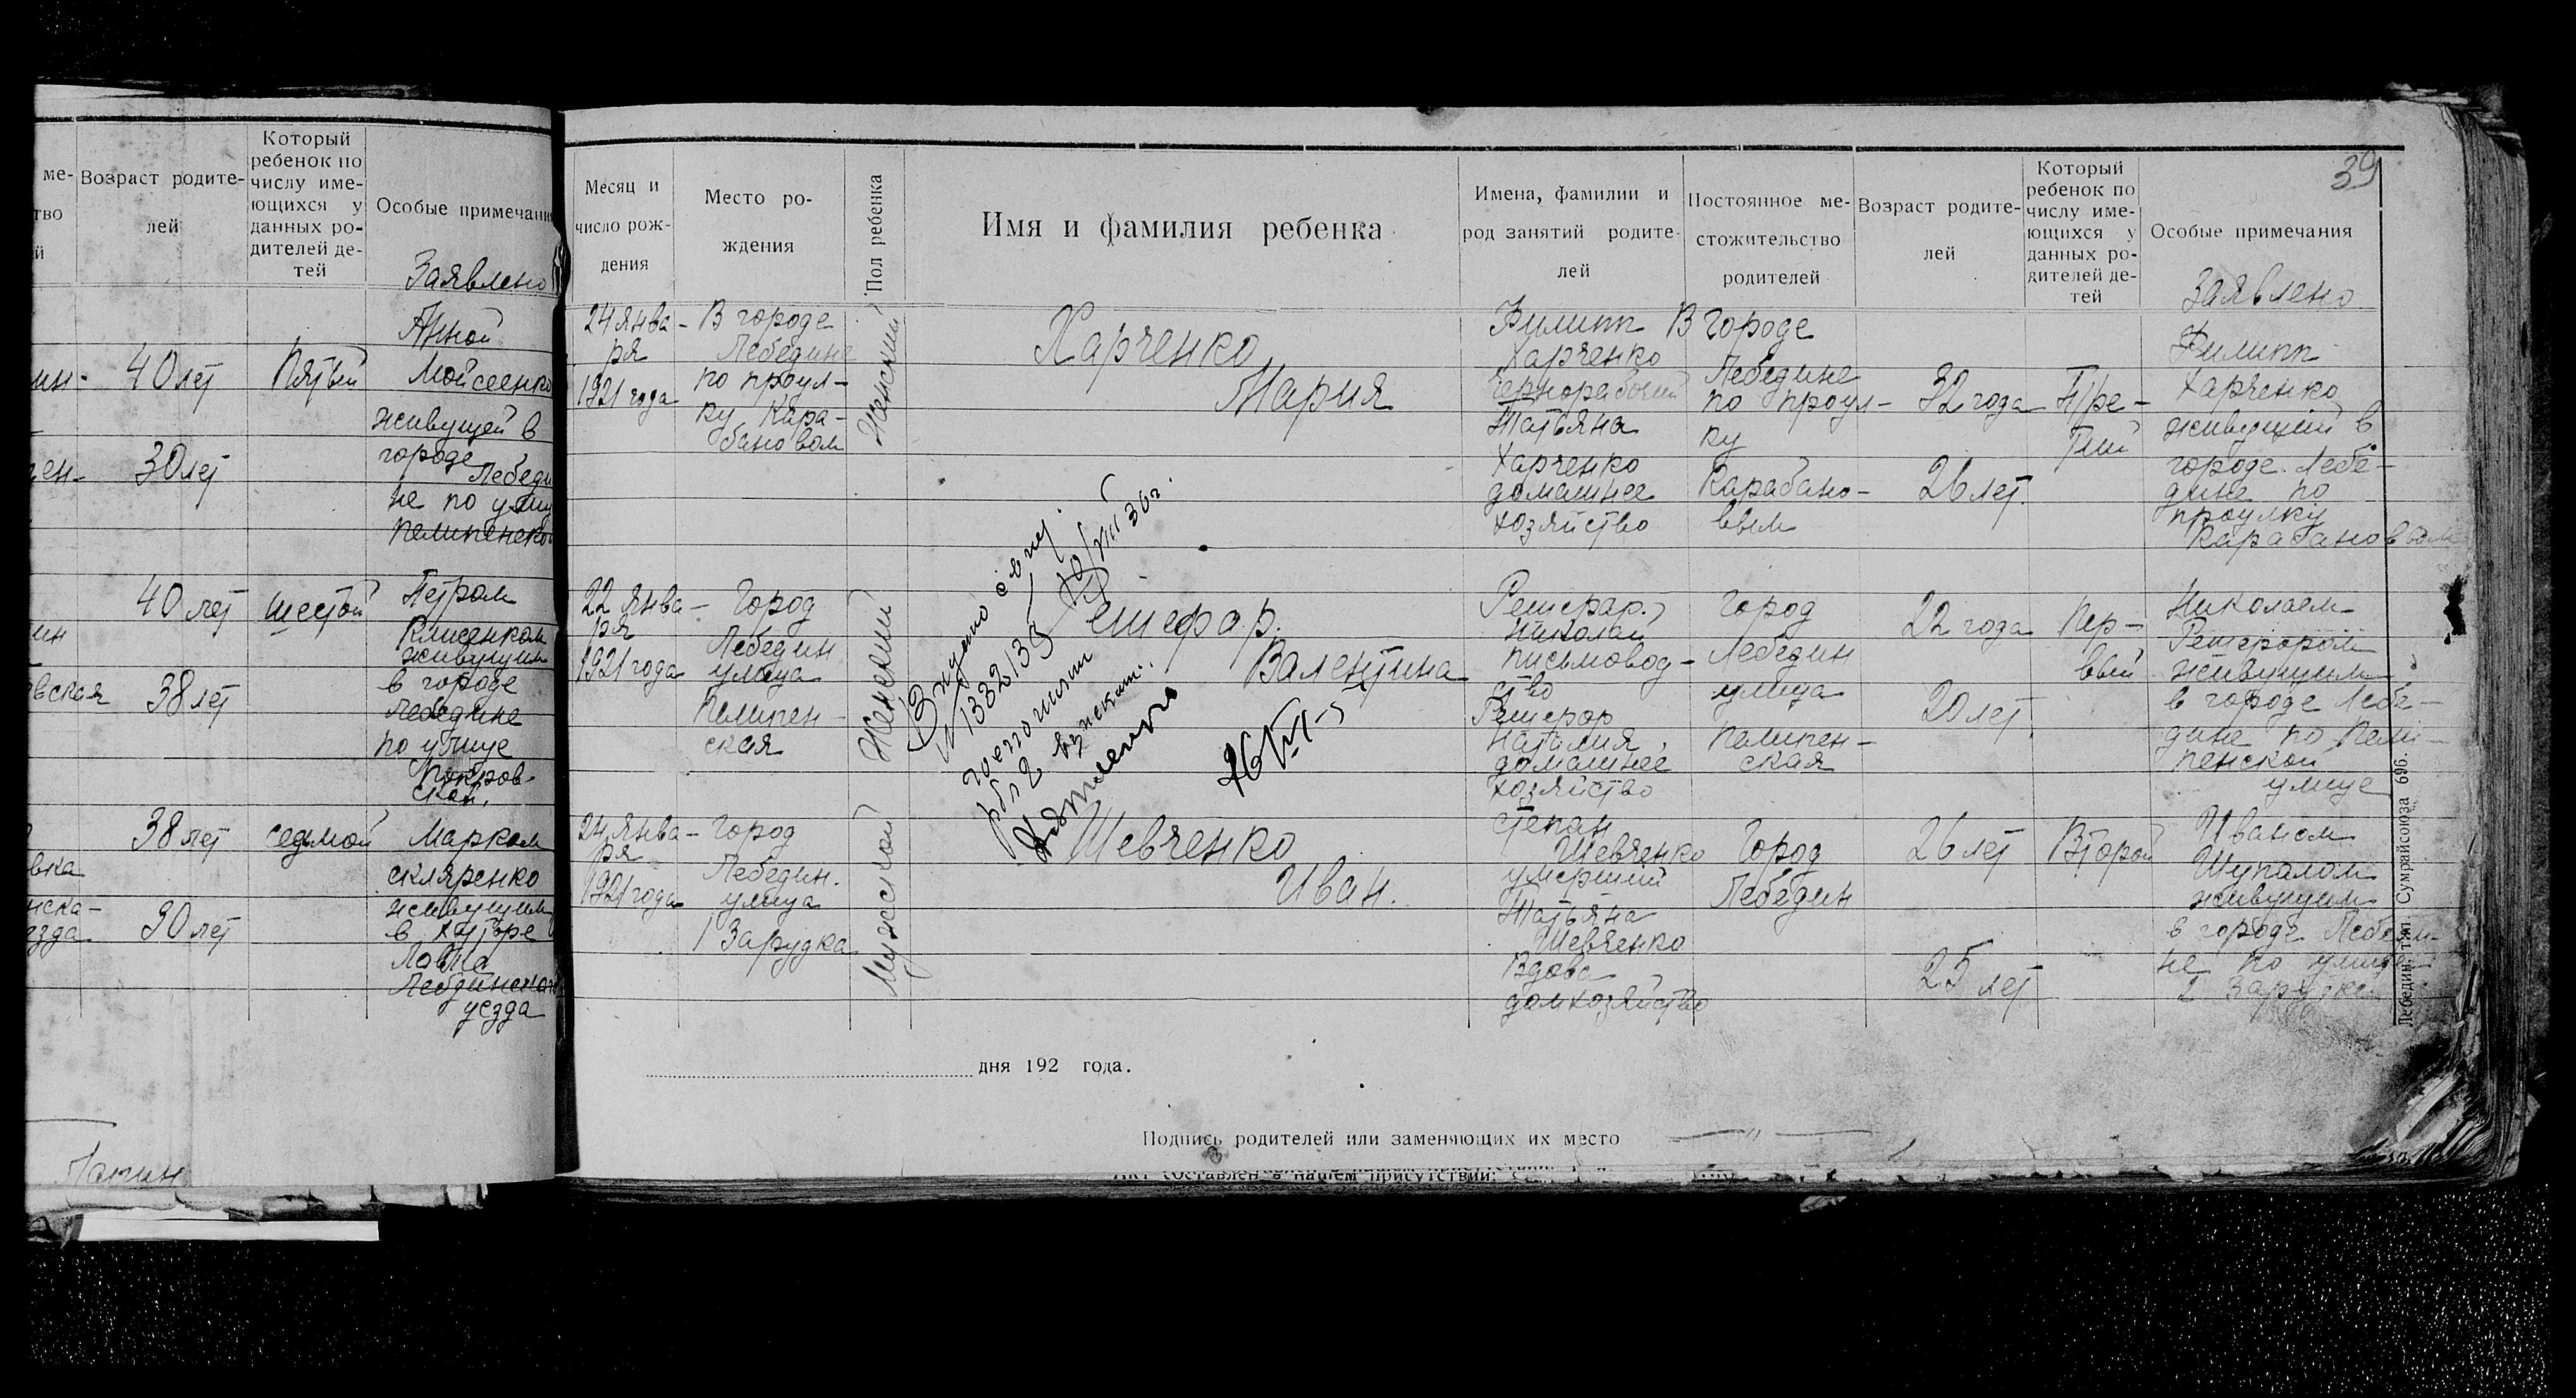 ме-
тво
й
Возраст родите-
лей
Который
ребенок по
числу име-
ющихся у
данных ро-
дителей де-
тей
Особые примечани
Заявлено
Анной
ин-
40 лет
Пятый
Мойсеенко
живущей в
городе
30 лет
Лебеди
не по улиц
Пелипенской
40 лет
шестой
Петром
Клисенком
живущим
ин
вская
38 лет
в городе
Лебедине
по улице
Покров-
ской.
38 лет
седьмой
Марком
вка
скляренко
нска-
живущим
езда
30 лет
в хуторе
Лебдинского
уезда
39
Месяц и
число рож-
дения
Место ро-
ждения
Пол ребенка
Имя и фамилия ребенка
Имена, фамилии и
род занятий родите-
лей
Постоянное ме-
стожительство
родителей
Возраст родите-
лей
Который
ребенок по
числу име-
ющихся у
данных ро-
дителей де-
тей
Особые примечания
Заявлено
24 янва-
ря
1921 года
В городе
Лебедине
по проул-
ку Кара-
бановом
Женский
Харченко
Мария
Филипп
Харченко
чернорабочий
Татьяна
Харченко
домашнее
хозяйство
В городе
Лебедине
по проул-
ку
Карабано-
ввым
32 года
26 лет.
Тре-
тий
Филипп
Харченко
живущий в
городе Лебе-
дине по
проулку
Карабановвом
22 янва-
ря
1921 года
Город
Лебедин
улица
Пелипен-
ская
Женский
Решефор.
Валентина
N 1382135
10/VIII 36 г.
26 VII-5
Решефар.
Николай
письмовод-
ство
Решефор
Наталия
домашнее
хозяйство
Город
Лебедин
улица
Пелипен-
ская
22 года
20 лет
Пер-
ввый
Николаем
Решефором
живущим
в городе Лебе-
дине по Пели-
пенской
улице
24 янва-
ря
1921 года
Город
Лебедин.
улица
1 Зарудка
Мужской
Шевченко
Иван.
Степан
Шевченко
умерший
Татьяна
Шевченко
Вдова
домхозяйство
Город
Лебедин
26 лет
25 лет
Второй
Иваном
Шупалом
живущим
в городе Лебеди-
не по улице
1 Зарудке
Лебедин, тип. Сумрайсоюза 696.
дня 192 года.
Подпись родителей или заменяющих их место
составлен в нашем присутствии: